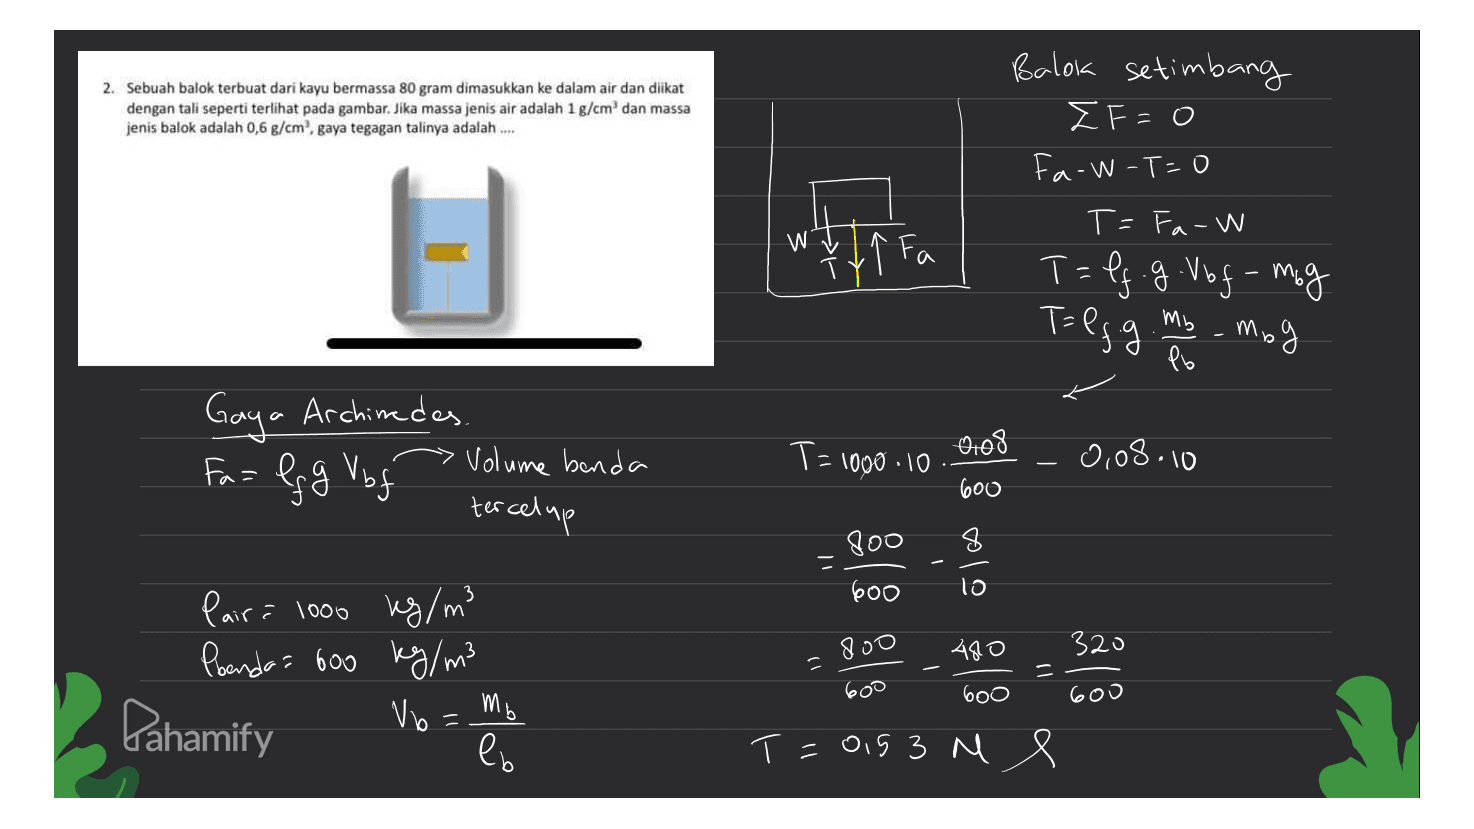 2. Sebuah balok terbuat dari kayu bermassa 80 gram dimasukkan ke dalam air dan diikat
dengan tali seperti terlihat pada gambar. Jika massa jenis air adalah 1 g/cm³ dan massa
jenis balok adalah 0,6 g/cm³, gaya tegagan talinya adalah ....
Balok setimbang
ΣF = 0
Fa - W - T = 0
T = Fa - W
T = ρf . g . Vbf - mb g
T = ρf . g . mb/ρb - mb g
W T Fa
Gaya Archimedes.
Fa = ρf g Vbf → Volume benda
tercelup
ρair = 1000 kg/m³
ρbenda = 600 kg/m³
Vb = mb/ρb
T = 1000 . 10 . 0,08/600 - 0,08 . 10
= 800/600 - 8/10
= 800/600 - 480/600 = 320/600
T = 0,53 N
Pahamify